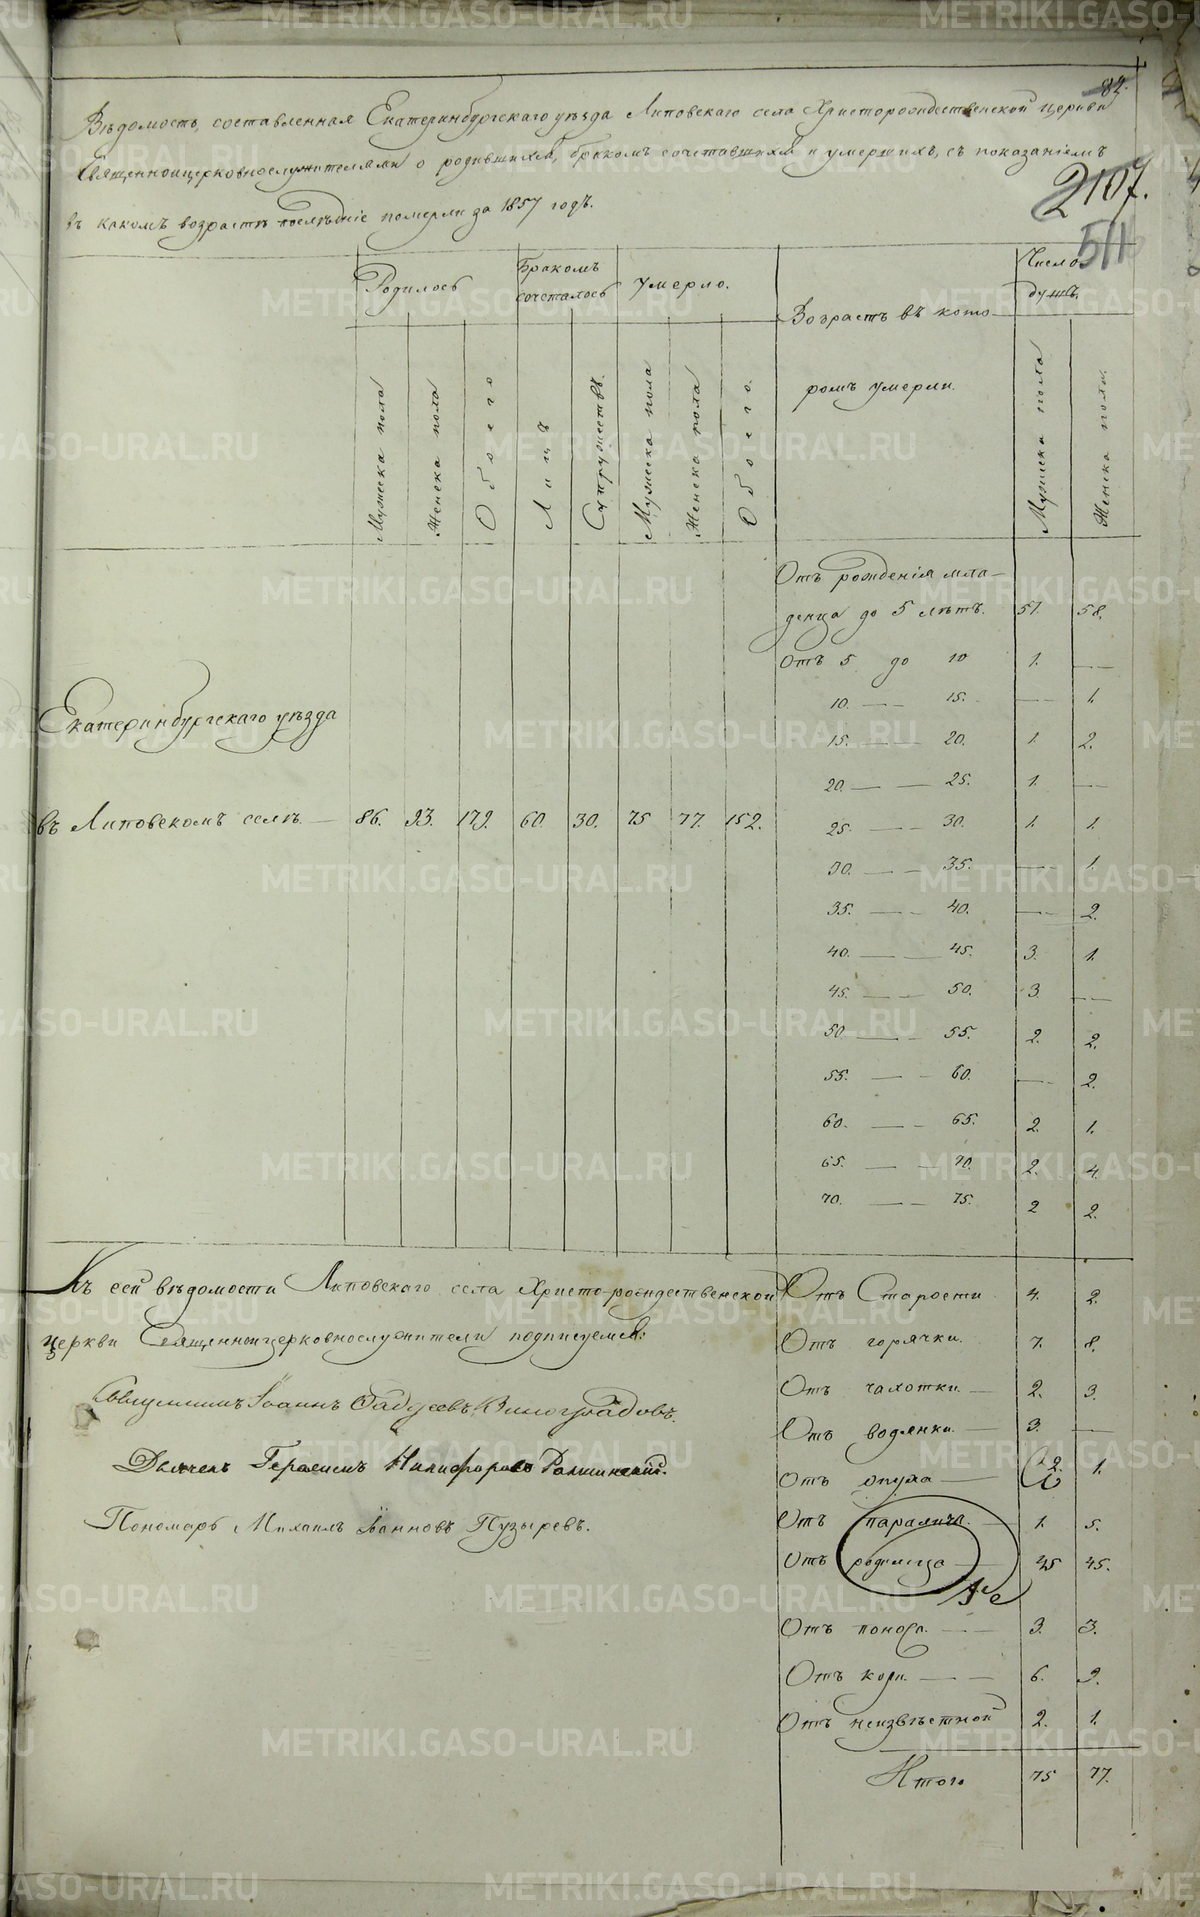 82.
Вѣдомость, составленная Екатеринбургскаго уѣзда Липовскаго села Христорождественской церкви
Священноицерковнослужителями о родившихся, бракомъ сочетавшихся и умершихъ, съ показаніемъ
въ какомъ возрастѣ послѣдніе померли за 1857 годъ.
2107.
511
Родилось
Бракомъ сочеталось
Умерло.
Возрастъ въ кото-
ромъ умерли.
Число
душъ.
Мужеска пола
Женска пола
Обоего
Лицъ
Супружествъ.
Мужеска пола
Женска пола
Обоего.
Мужеска пола
Женска пола.
Отъ рожденія мла-
денца до 5 лѣтъ. 51. 58.
Отъ 5 до 10 1. —
10. — 15. — 1.
15. — 20. 1. 2.
20. — 25. 1. —
25. — 30. 1. 1.
30. — 35. — 1.
35. — 40. — 2.
40. — 45. 3. 1.
45. — 50. 3. —
50. — 55. 2. 2.
55. — 60. — 2.
60. — 65. 2. 1.
65. — 70. 2. 4.
70. — 75. 2 2.
Екатеринбургскаго уѣзда
въ Липовскомъ селѣ. — 86. 93. 179. 60. 30. 75 77. 152.
Къ сей вѣдомости Липовскаго села Христо-рождественской
церкви Священноицерковнослужители подписуемся:
Іоаннъ Фаддеевъ Виноградовъ.
Дьячекъ Герасимъ Никифоровъ
Пономарь Михаилъ Іванновъ Пузыревъ.
Отъ Старости 4. 2.
Отъ горячки. 7. 8.
Отъ чахотки. — 2. 3.
Отъ водянки. — 3. —
Отъ опуха — 2. 1.
Отъ паралича. — 1. 5.
Отъ родимца — 45 45.
Отъ поноса. — 3. 3.
Отъ кори. — 6. 9.
Отъ неизвѣстной 2. 1.
Итого 75 77.
METRIKI.GASO-URAL.RU